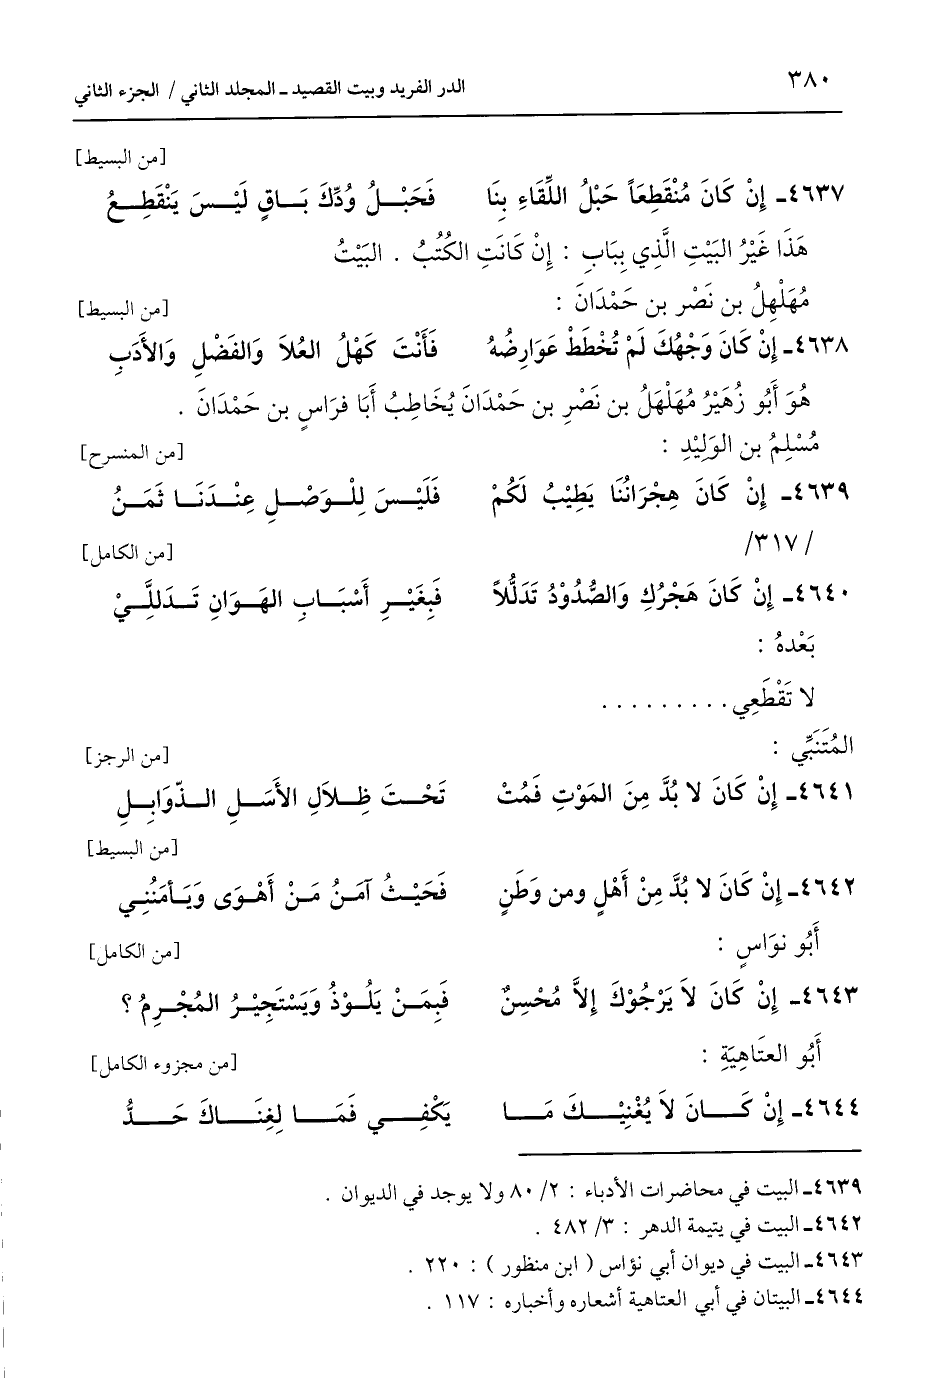 ٣٨٠ الدر الفريد وبيت القصيد ـ المجلد الثاني / الجزء الثاني
[من البسيط]
٤٦٣٧ـ إِنْ كَانَ مُنْقَطِعَاً حَبْلُ اللِّقَاءِ بِنَا فَحَبْـلُ وُدِّكَ بَـاقٍ لَيْـسَ يَنْقَطِـعُ
هَذَا غَيْرُ البَيْتِ الَّذِي بِبَابِ : إِنْ كَانَتِ الكُتُبُ . البَيْتُ
مُهَلْهِلُ بن نَصْرِ بن حَمْدَانَ : [من البسيط]
٤٦٣٨ـ إِنْ كَانَ وَجْهُكَ لَمْ تُخْطَطْ عَوَارِضُهُ فَأَنْتَ كَهْلُ العُلاَ وَالفَضْلِ وَالأَدَبِ
هُوَ أَبُو زُهَيْرُ مُهَلْهَلُ بن نَصْرِ بن حَمْدَانَ يُخَاطِبُ أَبَا فرَاسٍ بن حَمْدَانَ .
مُسْلِمُ بن الوَلِيْدِ : [من المنسرح]
٤٦٣٩ـ إِنْ كَانَ هِجْرَانُنَا يَطِيْبُ لَكُمْ فَلَيْـسَ لِلْـوَصْـلِ عِنْـدَنَـا ثَمَـنُ
/٣١٧/ [من الكامل]
٤٦٤٠ـ إِنْ كَانَ هَجْرُكِ وَالصُّدُوْدُ تَدَلُّلاً فَبِغَيْـرِ أَسْبَـابِ الهَـوَانِ تَـدَللَّـِيْ
بَعْدهُ :
لا تَقْطَعِي . . . . . . . . .
المُتَنَبِّي : [من الرجز]
٤٦٤١ـ إِنْ كَانَ لا بُدَّ مِنَ المَوْتِ فَمُتْ تَحْـتَ ظِـلاَلِ الأَسَـلِ الـذّوَابِـلِ
[من البسيط]
٤٦٤٢ـ إِنْ كَانَ لا بُدَّ مِنْ أَهْلٍ ومن وَطَنٍ فَحَيْـثُ آمَـنُ مَـنْ أَهْـوَى وَيَـأمَنُنِـي
أَبُو نوَاسٍ : [من الكامل]
٤٦٤٣ـ إِنْ كَانَ لاَ يَرْجُوْكَ إِلاَّ مُحْسِنٌ فَبِمَـنْ يَلُـوْذُ وَيَسْتَجِيْـرُ المُجْـرِمُ ؟
أَبُو العتَاهِيَةِ : [من مجزوء الكامل]
٤٦٤٤ـ إِنْ كَــانَ لاَ يُغْنِيْــكَ مَــا يَكْفِــي فَمَــا لِغِنَــاكَ حَــدُّ
٤٦٣٩ـ البيت في محاضرات الأدباء : ٢/ ٨٠ ولا يوجد في الديوان .
٤٦٤٢ـ البيت في يتيمة الدهر : ٣/ ٤٨٢ .
٤٦٤٣ـ البيت في ديوان أبي نؤاس ( ابن منظور ) : ٢٢٠ .
٤٦٤٤ـ البيتان في أبي العتاهية أشعاره وأخباره : ١١٧ .